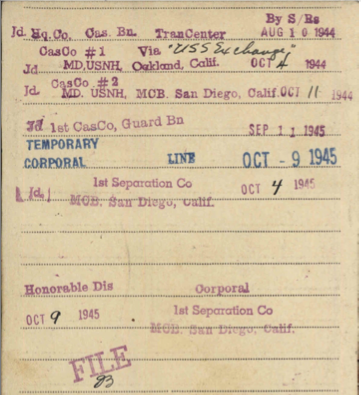 By S/Rs
Jd. Hq. Co. Cas. Bn. TranCenter AUG 10 1944
CasCo #1 Via "USS Exchange"
Jd MD, USNH, Oakland, Calif. OCT 4 1944
CasCo #2
Jd. MD. USNH, MCB. San Diego, Calif. OCT 11 1944
Jd 1st CasCo, Guard Bn SEP 11 1945
TEMPORARY
CORPORAL LINE OCT -9 1945
1st Separation Co
Jd. MCB. San Diego, Calif. OCT 4 1945
Honorable Dis Corporal
OCT 9 1945 1st Separation Co
MCB. San Diego, Calif.
FILE